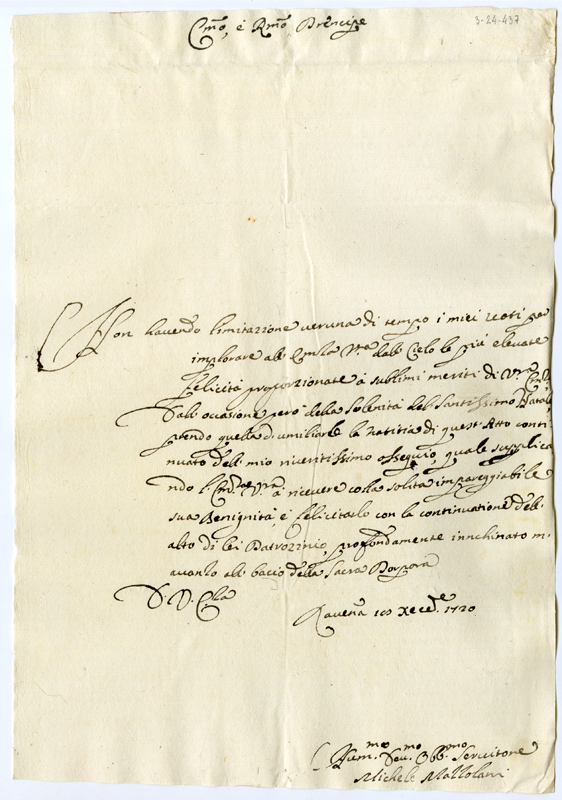 3-24-437
Emo, e Rmo Prencipe
Non havendo limitazione veruna di tempo i miei voti per
implorare all' Emza Vra dall' Cielo le più elevate
felicità proporzionate à sublimi meriti di Vra Emza
dall' occasione però della solenità del Santissimo Natale
prendo quella d'umiliarle la notitia di quest' Atto conti
nuato dell' mio riveritissimo ossequio, quale supplica
ndo l' Emza Vra à ricevere colla solita impareggiabile
sua Benignità, e felicitarlo con la continuatione dell'
alto di lei Patrozinio, profondamente innchinato m'
avanzo all' bacio della Sacra Porpora
D. V. Emza
Ravena Xcebre 1720
Hummo Devmo Obbmo Servitore
Michele